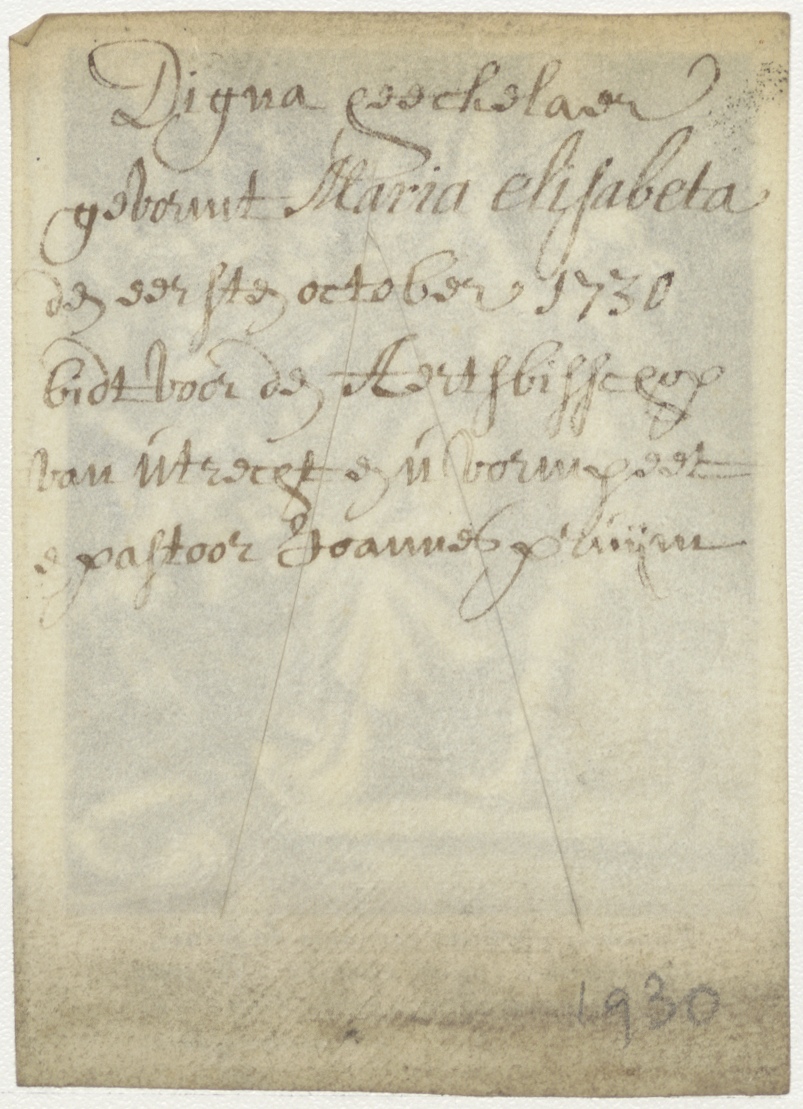 Digna geechelaer
gevormt Maria elisabeta
den eersten october 1730
bidt voor den Aertsbisschop
van Utrecht en u vormpeet
e pastoor Joannes pruijm
1930